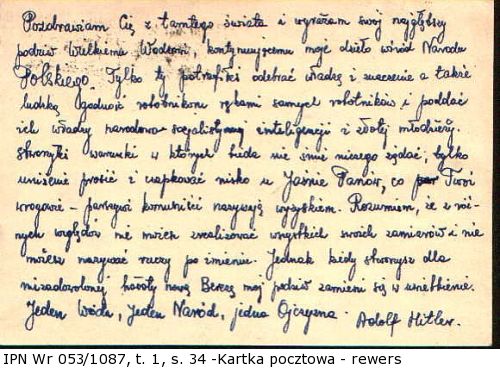 Pozdrawiam Cię z tamtego świata i wyrażam swój najgłębszy
podziw Wielkiemu Wodzowi, kontynuującemu moje dzieło wśród Narodu
Polskiego. Tylko ty potrafiłeś odebrać władzę i znaczenie a także
ludzką godność robotnikom rękami samych robotników i poddać
ich władzy narodowo-socjalistycznej inteligencji i złotej młodzieży.
Stworzyłeś warunki w których bieda nie śmie niczego żądać, tylko
uniżenie prosić i czapkować nisko u Jaśnie Panów, co Twoi
wrogowie - parszywi komuniści nazywają wyzyskiem. Rozumiem, że z róż-
nych względów nie możesz zrealizować wszystkich swoich zamiarów i nie
możesz nazywać rzeczy po imieniu. Jednak kiedy stworzysz dla
niezadowolonej hołoty nową Berezę mój podziw zamieni się w uwielbienie.
Jeden Wódz, Jeden Naród, jedna Ojczyzna.
Adolf Hitler.
IPN Wr 053/1087, t. 1, s. 34 -Kartka pocztowa - rewers